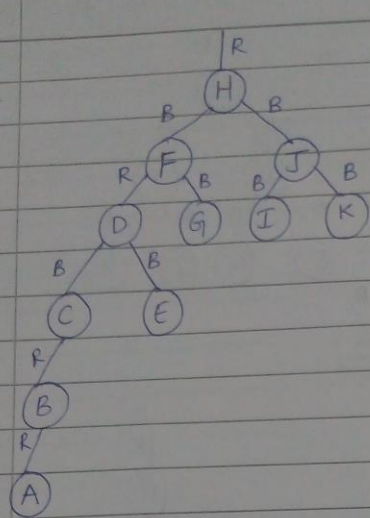 R
H
B B
F J
R B B B
D G I K
B B
C E
R
B
R
A